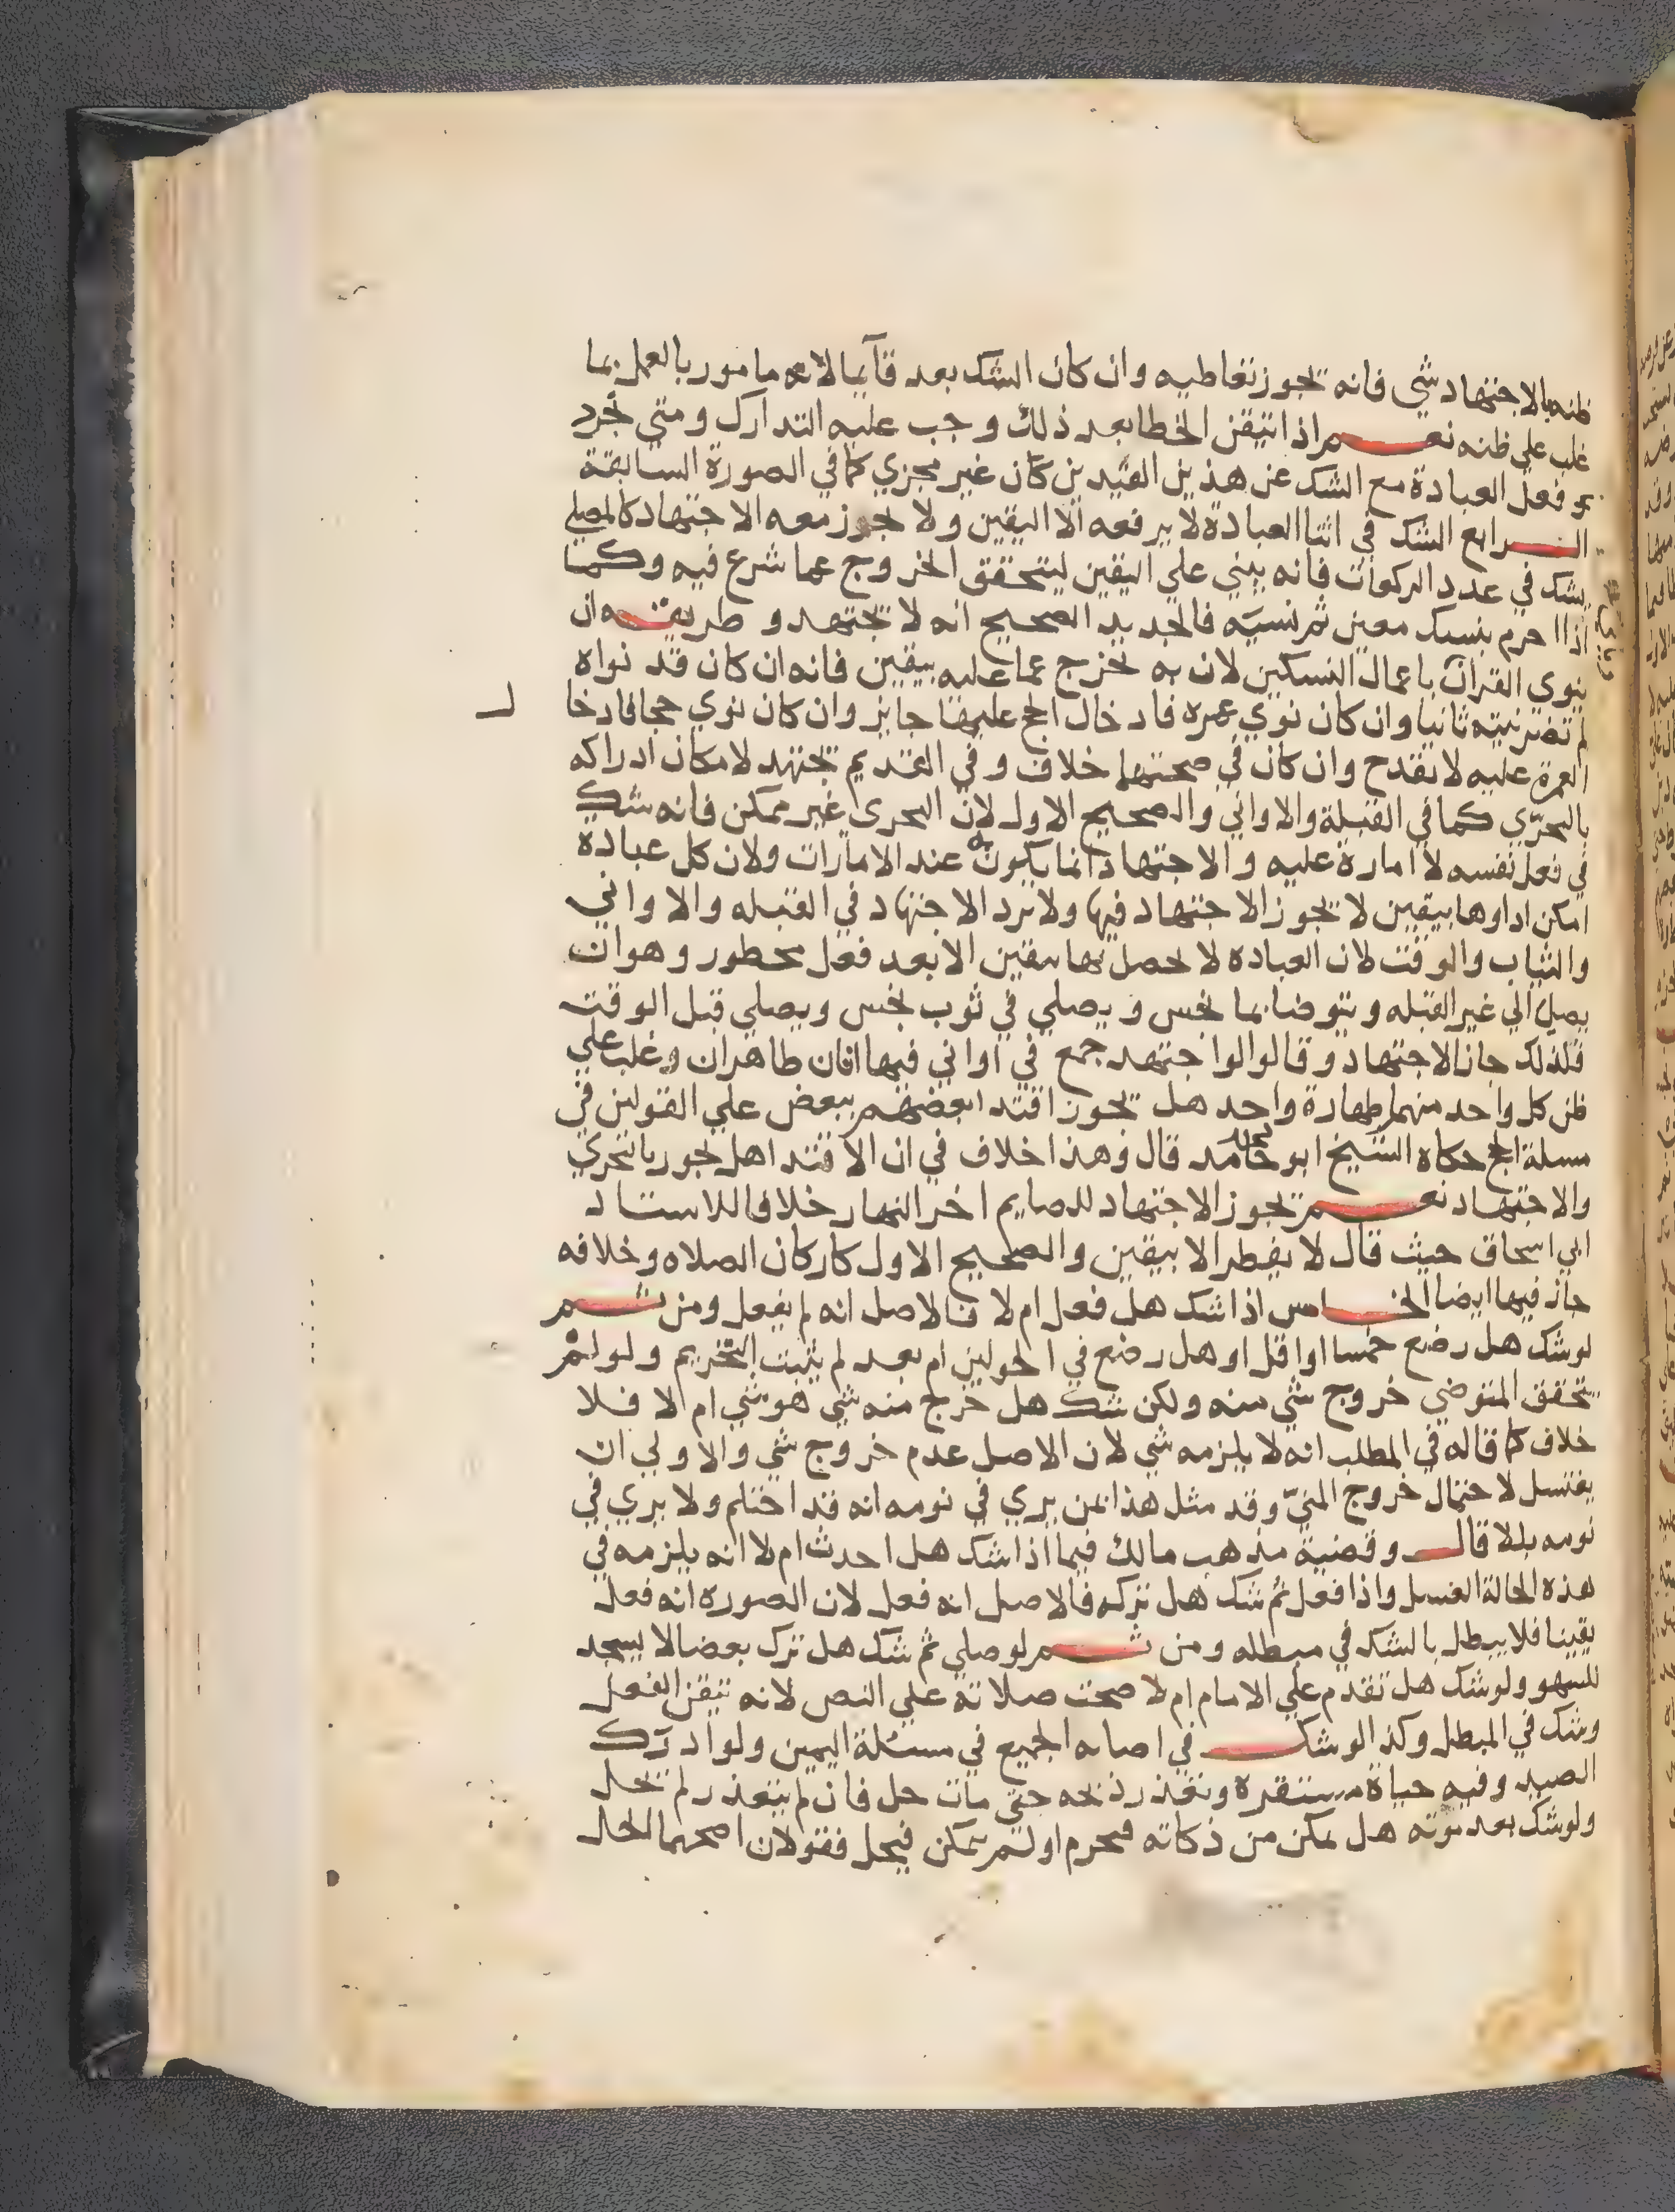 ظنه بالاجتهاد شي فانه يجوز تعاطيه وان كان الشك بعد قآيما لانه مامور بالعمل بما
غلب علي ظنه نعم اذا تيقن الخطا بعد ذلك وجب عليه التدارك ومتي تجرد
فعل العبادة مع الشك عن هذين القيدين كان غير مجزي كما في الصورة السابقة
الرابع الشك في اثنا العبادة لا يرفعه الا اليقين ولا يجوز معه الاجتهاد كالمصلي
يشك في عدد الركعات فانه يبني علي اليقين ليتحقق الخروج عما شرع فيه وكما
اذا احرم بنسك معين ثم نسيه فالجديد الصحيح انه لا يجتهد وطريقه ان
ينوى القران باعمال النسكين لان به يخرج عما عليه بيقين فانه ان كان قد نواه
لم تضر نيته ثانيا وان كان نوي عمرة فادخال الحج عليها جايز وان كان نوي حجا فادخا ل
العمرة عليه لا يقدح وان كان في صحتها خلاف وفي القديم يجتهد لامكان ادراكه
بالتحرّي كما في القبلة والاواني والصحيح الاول لان التحرى غير ممكن فانه شك
في فعل نفسه لا امارة عليه والاجتهاد انما يكون به عند الامارات ولان كل عبادة
امكن اداوها بيقين لا يجوز الاجتهاد فيها ولا نرد الاجتهاد في القبله والاواني
والثياب والوقت لان العباده لا يحصل بها بيقين الا بعد فعل محظور وهو ان
يصلي الي غير القبله ويتوضا بما نجس ويصلي في ثوب نجس ويصلي قبل الوقت
فلذلك جاز الاجتهاد وقالوا لو اجتهد جمع في اواني فيها انان طاهران وغلب علي
ظن كل واحد منهما طهارة واحد هل يجوز اقتدا بعضهم ببعض علي القولين في
مسلة الحج حكاه الشيخ ابو حامد قال وهذا خلاف في ان الاقتدا هل يجوز بالتحري
والاجتهاد نعم يجوز الاجتهاد للصايم اخر النهار خلافا للاستاد
ابي اسحاق حيث قال لا يفطر الا بيقين والصحيح الاول كاركان الصلاه وخلافه
جاز فيها ايضا الخامس اذا شك هل فعل ام لا فالاصل انه لم يفعل ومن ثم
لو شك هل رضع خمسا او اقل او هل رضع في الحولين ام بعد لم يثبت التحريم ولو لم
يتحقق المتوضي خروج شي منه ولكن شك هل خرج منه شي هو شي ام لا فلا
خلاف كما قاله في المطلب انه لا يلزمه شي لان الاصل عدم خروج شي والاولي ان
يغتسل لاحتمال خروج المنيّ وقد مثل هذا بمن يري في نومه انه قد احتلم ولا يري في
نومه بللا قال وقضية مذهب مالك فيما اذا شك هل احدث ام لا انه يلزمه في
هذه الحالة الغسل واذا فعل ثم شك هل تركه فالاصل انه فعل لان الصورة انه فعل
يقينا فلا يبطل بالشك في مبطله ومن ثم لو صلي ثم شك هل ترك بعضا لا يسجد
للسهو ولو شك هل تقدم علي الامام ام لا صحت صلاته علي النص لانه تيقن الفعل
وشك في المبطل وكذا لو شك في اصابه الجميع في مسئلة اليمين ولو ادرك
الصيد وفيه حياة مستقرة وتعذر ذبحه حتي مات حل فان لم يتعذر لم يحل
ولو شك بعد موته هل تمكن من ذكاته فيحرم او لم يتمكن فيحل فقولان اصحهما الحل